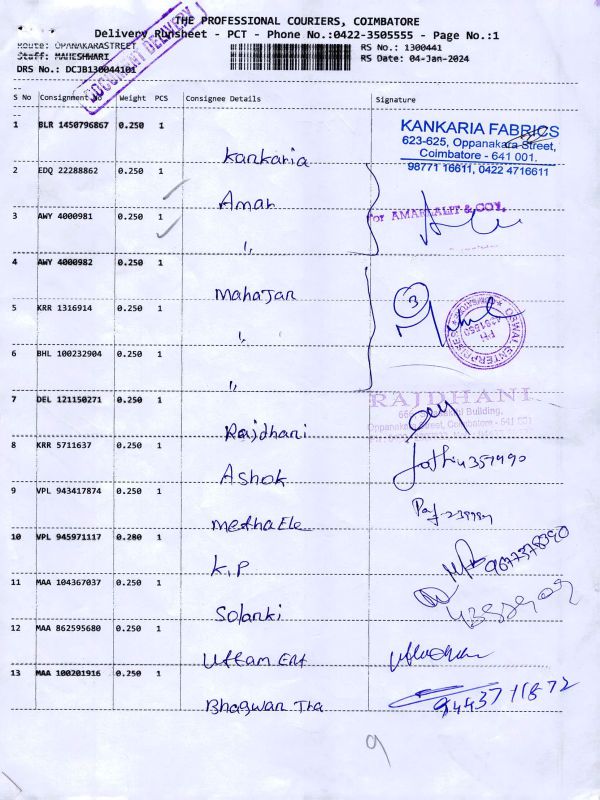 THE PROFESSIONAL COURIERS, COIMBATORE
Delivery Runsheet - PCT - Phone No.:0422-3505555 - Page No.:1
Route: OPANAKARASTREET
RS No.: 1300441
Staff: MAHESHWARI
RS Date: 04-Jan-2024
DRS No.: DCJB130044101
DOCUMENT DELIVERY
S No Consignment No Weight PCS Consignee Details Signature
1 BLR 1450796867 0.250 1 Kankaria
KANKARIA FABRICS
623-625, Oppanakara Street,
Coimbatore - 641 001.
98771 16611, 0422 4716611
2 EDQ 22288862 0.250 1 Amar
For AMAR LALIT & COY,
3 AWY 4000981 0.250 1 ,,
4 AWY 4000982 0.250 1 Mahajan
3
OSWAL ENTERPRISES
5 KRR 1316914 0.250 1 ,,
6 BHL 100232904 0.250 1 ,,
7 DEL 121150271 0.250 1 Rajdhani
RAJDHANI
Building,
Oppanakara Street, Coimbatore - 641 001
8 KRR 5711637 0.250 1 Ashok
9 VPL 943417874 0.250 1 Metha Ele
10 VPL 945971117 0.280 1 K.P
9677378390
11 MAA 104367037 0.250 1 Solanki
12 MAA 862595680 0.250 1 Uttam Ent
13 MAA 100201916 0.250 1 Bhagwan Tra
9443711872
9